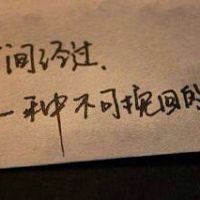 间经过、
一种不可挽回的